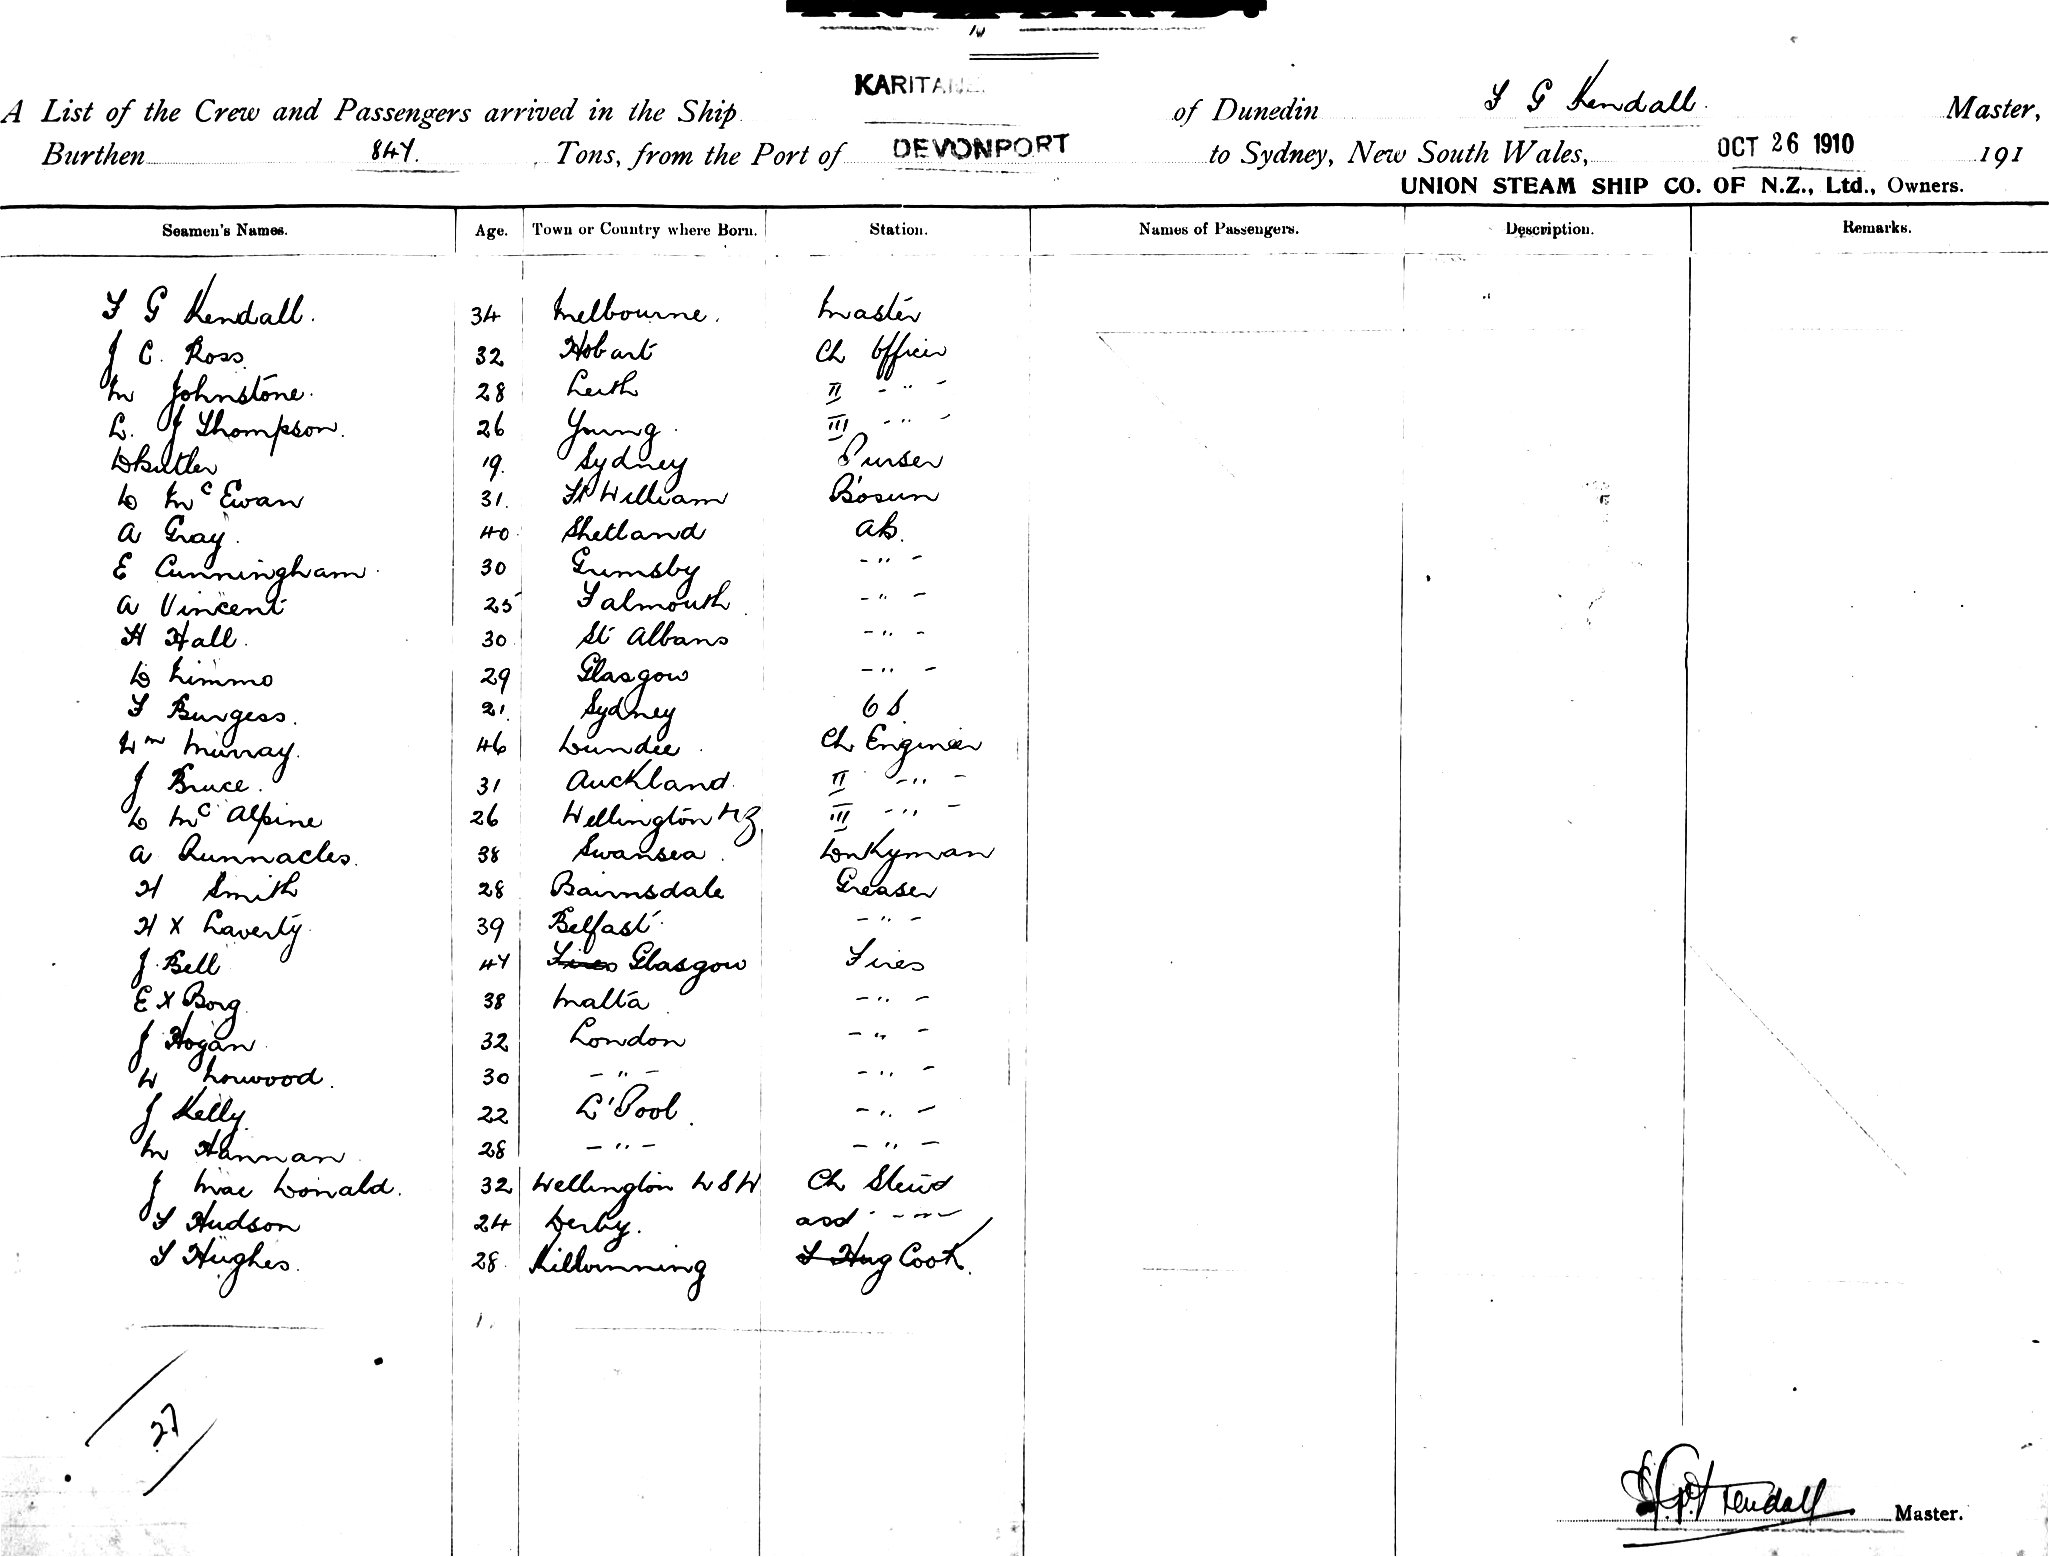 KARITANE
A List of the Crew and Passengers arrived in the Ship of Dunedin F G Kendall. Master,
Burthen 847. Tons, from the Port of DEVONPORT to Sydney, New South Wales, OCT 26 1910 191
UNION STEAM SHIP CO. OF N.Z., Ltd., Owners.
Seamen's Names. Age. Town or Country where Born. Station. Names of Passengers. Description. Remarks.
F G Kendall. 34 Melbourne. Master
J C. Ross. 32 Hobart Ch Officer
M Johnstone. 28 Leith II - " -
L. J Thompson. 26 Young. III - " -
D Butler 19. Sydney Purser
D McEwan 31. Ft William Bosun
A Gray. 40 Shetland AB.
E Cunningham. 30 Grimsby - " -
A Vincent 25 Falmouth - " -
H Hall. 30 St Albans - " -
D Nimmo 29 Glasgow - " -
F Burgess. 21. Sydney OS
Wm Murray. 46 Dundee. Ch Engineer
J Bruce. 31 Auckland. II - " -
D McAlpine 26 Wellington NZ. III - " -
A Runnacles. 38 Swansea. Donkyman
H Smith 28 Bairnsdale Greaser
H X Laverty. 39 Belfast. - " -
J. Bell 47 Fires Glasgow Fires
E X Borg 38 Malta - " -
J Hogan 32 London - " -
W Norwood. 30 - " - - " -
J Kelly. 22 L'Pool. - " -
M Hannan 28 - " - - " -
J MacDonald. 32 Wellington NSW Ch Stewd
F Hudson 24 Derby. asst - " -
F Hughes. 28. Killwinning F Hug Cook.
27
F. G. Kendall Master.